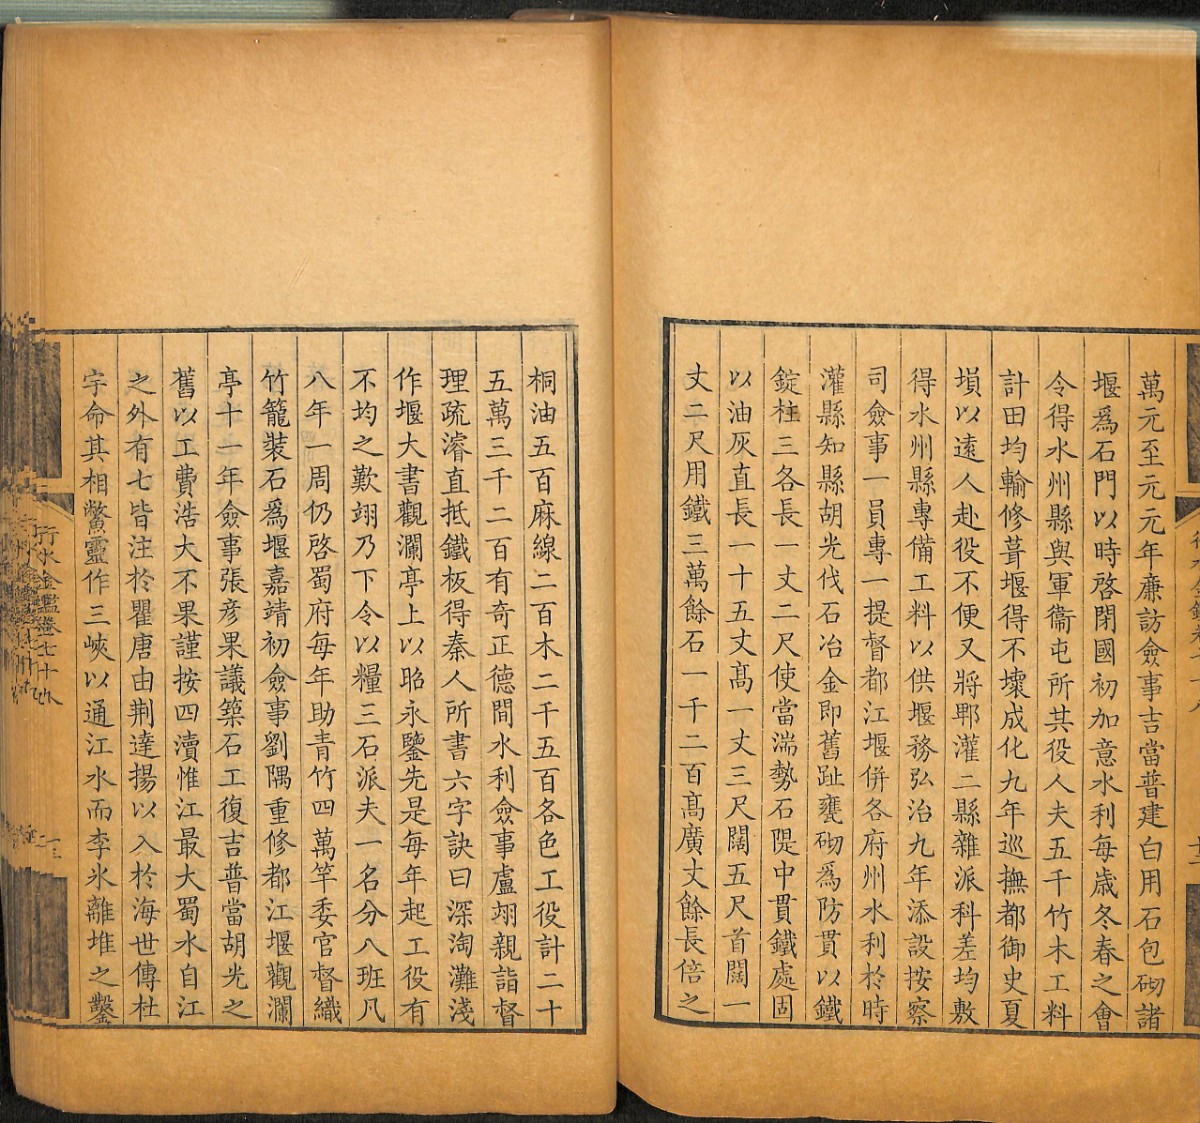 萬元至元元年廉訪僉事吉當普建白用石包砌諸
堰爲石門以時啓閉國初加意水利每歲冬春之會
令得水州縣與軍衞屯所其役人夫五千竹木工料
計田均輸修葺堰得不壞成化九年巡撫都御史夏
塤以遠人赴役不便又將郫灌二縣雜派科差均敷
得水州縣專備工料以供堰務弘治九年添設按察
司僉事一員專一提督都江堰併各府州水利於時
灌縣知縣胡光伐石冶金即舊趾甕砌爲防貫以鐵
錠柱三各長一丈二尺使當湍勢石隄中貫鐵處固
以油灰直長一十五丈高一丈三尺闊五尺首闊一
丈二尺用鐵三萬餘石一千二百高廣丈餘長倍之
桐油五百麻線二百木二千五百各色工役計二十
五萬三千二百有奇正德間水利僉事盧翊親詣督
理疏濬直抵鐵板得秦人所書六字訣曰深淘灘淺
作堰大書觀瀾亭上以昭永鑒先是每年起工役有
不均之歎翊乃下令以糧三石派夫一名分八班凡
八年一周仍啓蜀府每年助青竹四萬竿委官督織
竹籠裝石爲堰嘉靖初僉事劉隅重修都江堰觀瀾
亭十一年僉事張彥果議築石工復吉普當胡光之
舊以工費浩大不果謹按四瀆惟江最大蜀水自江
之外有七皆注於瞿唐由荆達揚以入於海世傳杜
宇命其相鱉靈作三峽以通江水而李氷離堆之鑿
行水金鑑卷七十八